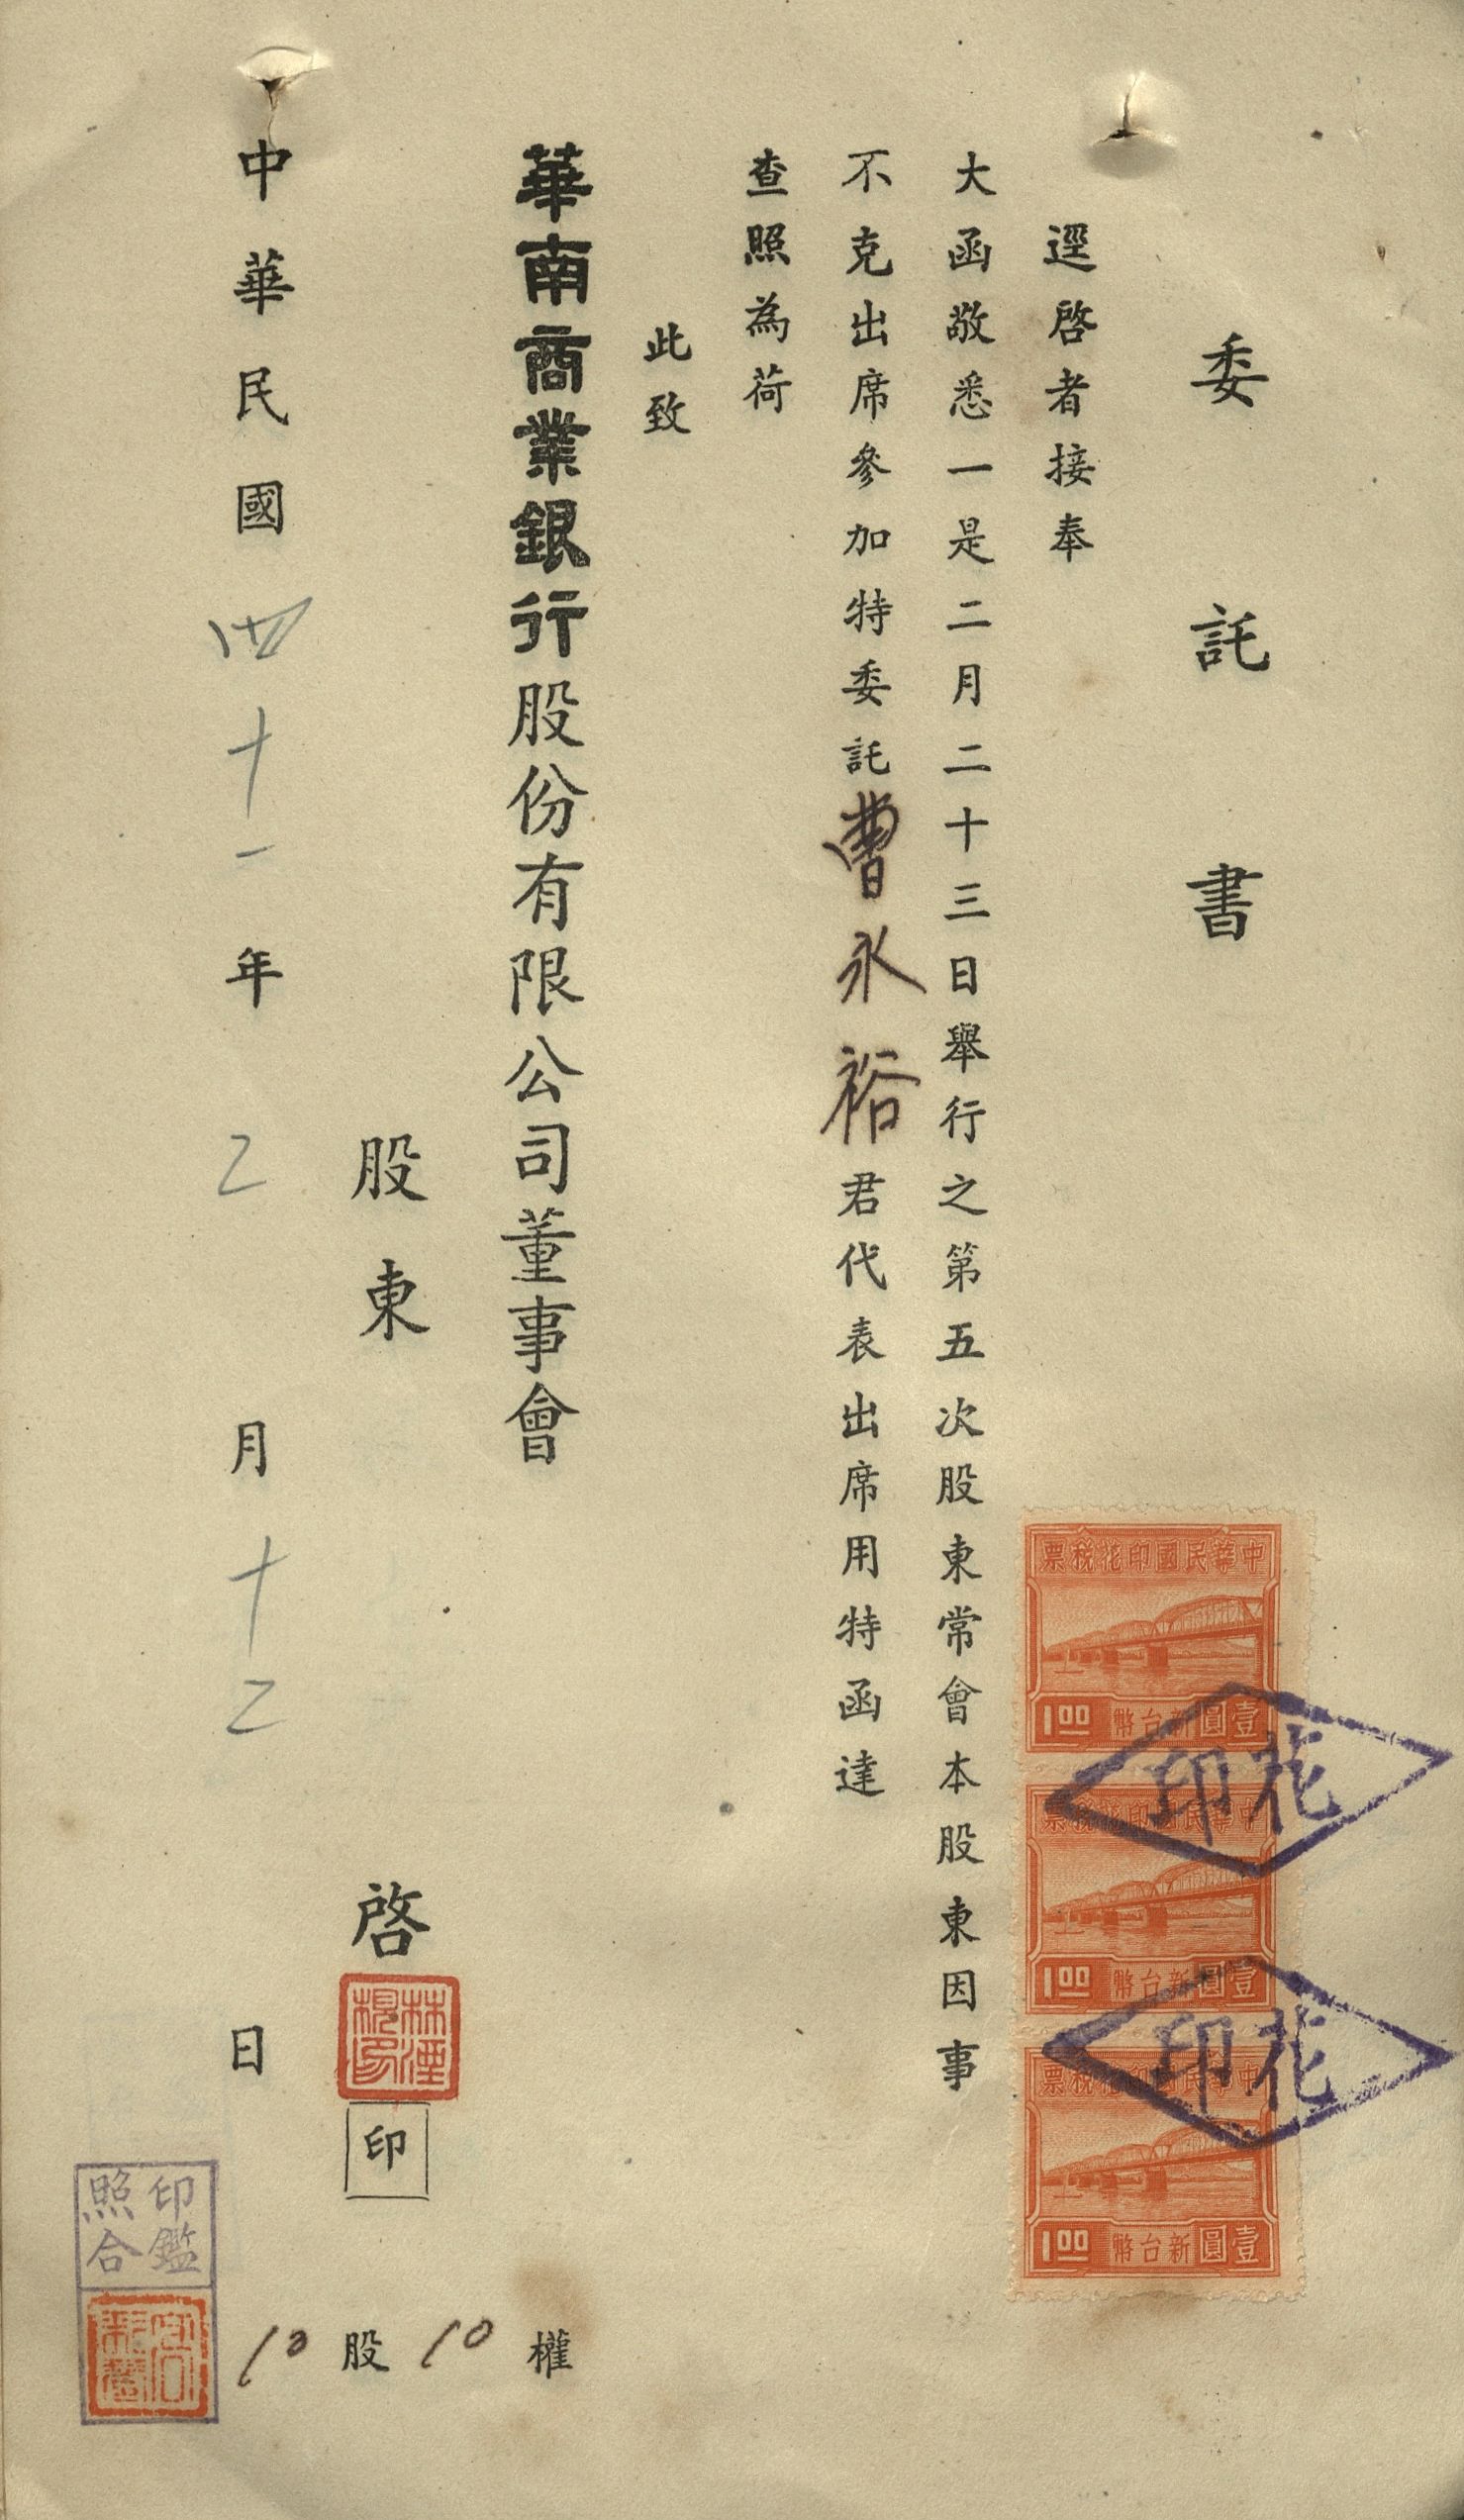 委託書
逕啓者接奉
大函敬悉一是二月二十三日舉行之第五次股東常會本股東因事
不克出席參加特委託曹永裕君代表出席用特函達
查照為荷
此致
華南商業銀行股份有限公司董事會
股東 啓
印
中華民國四十一年乙月十乙日
10股10權
印鑑
照合
中華民國印花稅票
壹圓新台幣
1.00
中華民國印花稅票
壹圓新台幣
1.00
中華民國印花稅票
壹圓新台幣
1.00
花印
花印